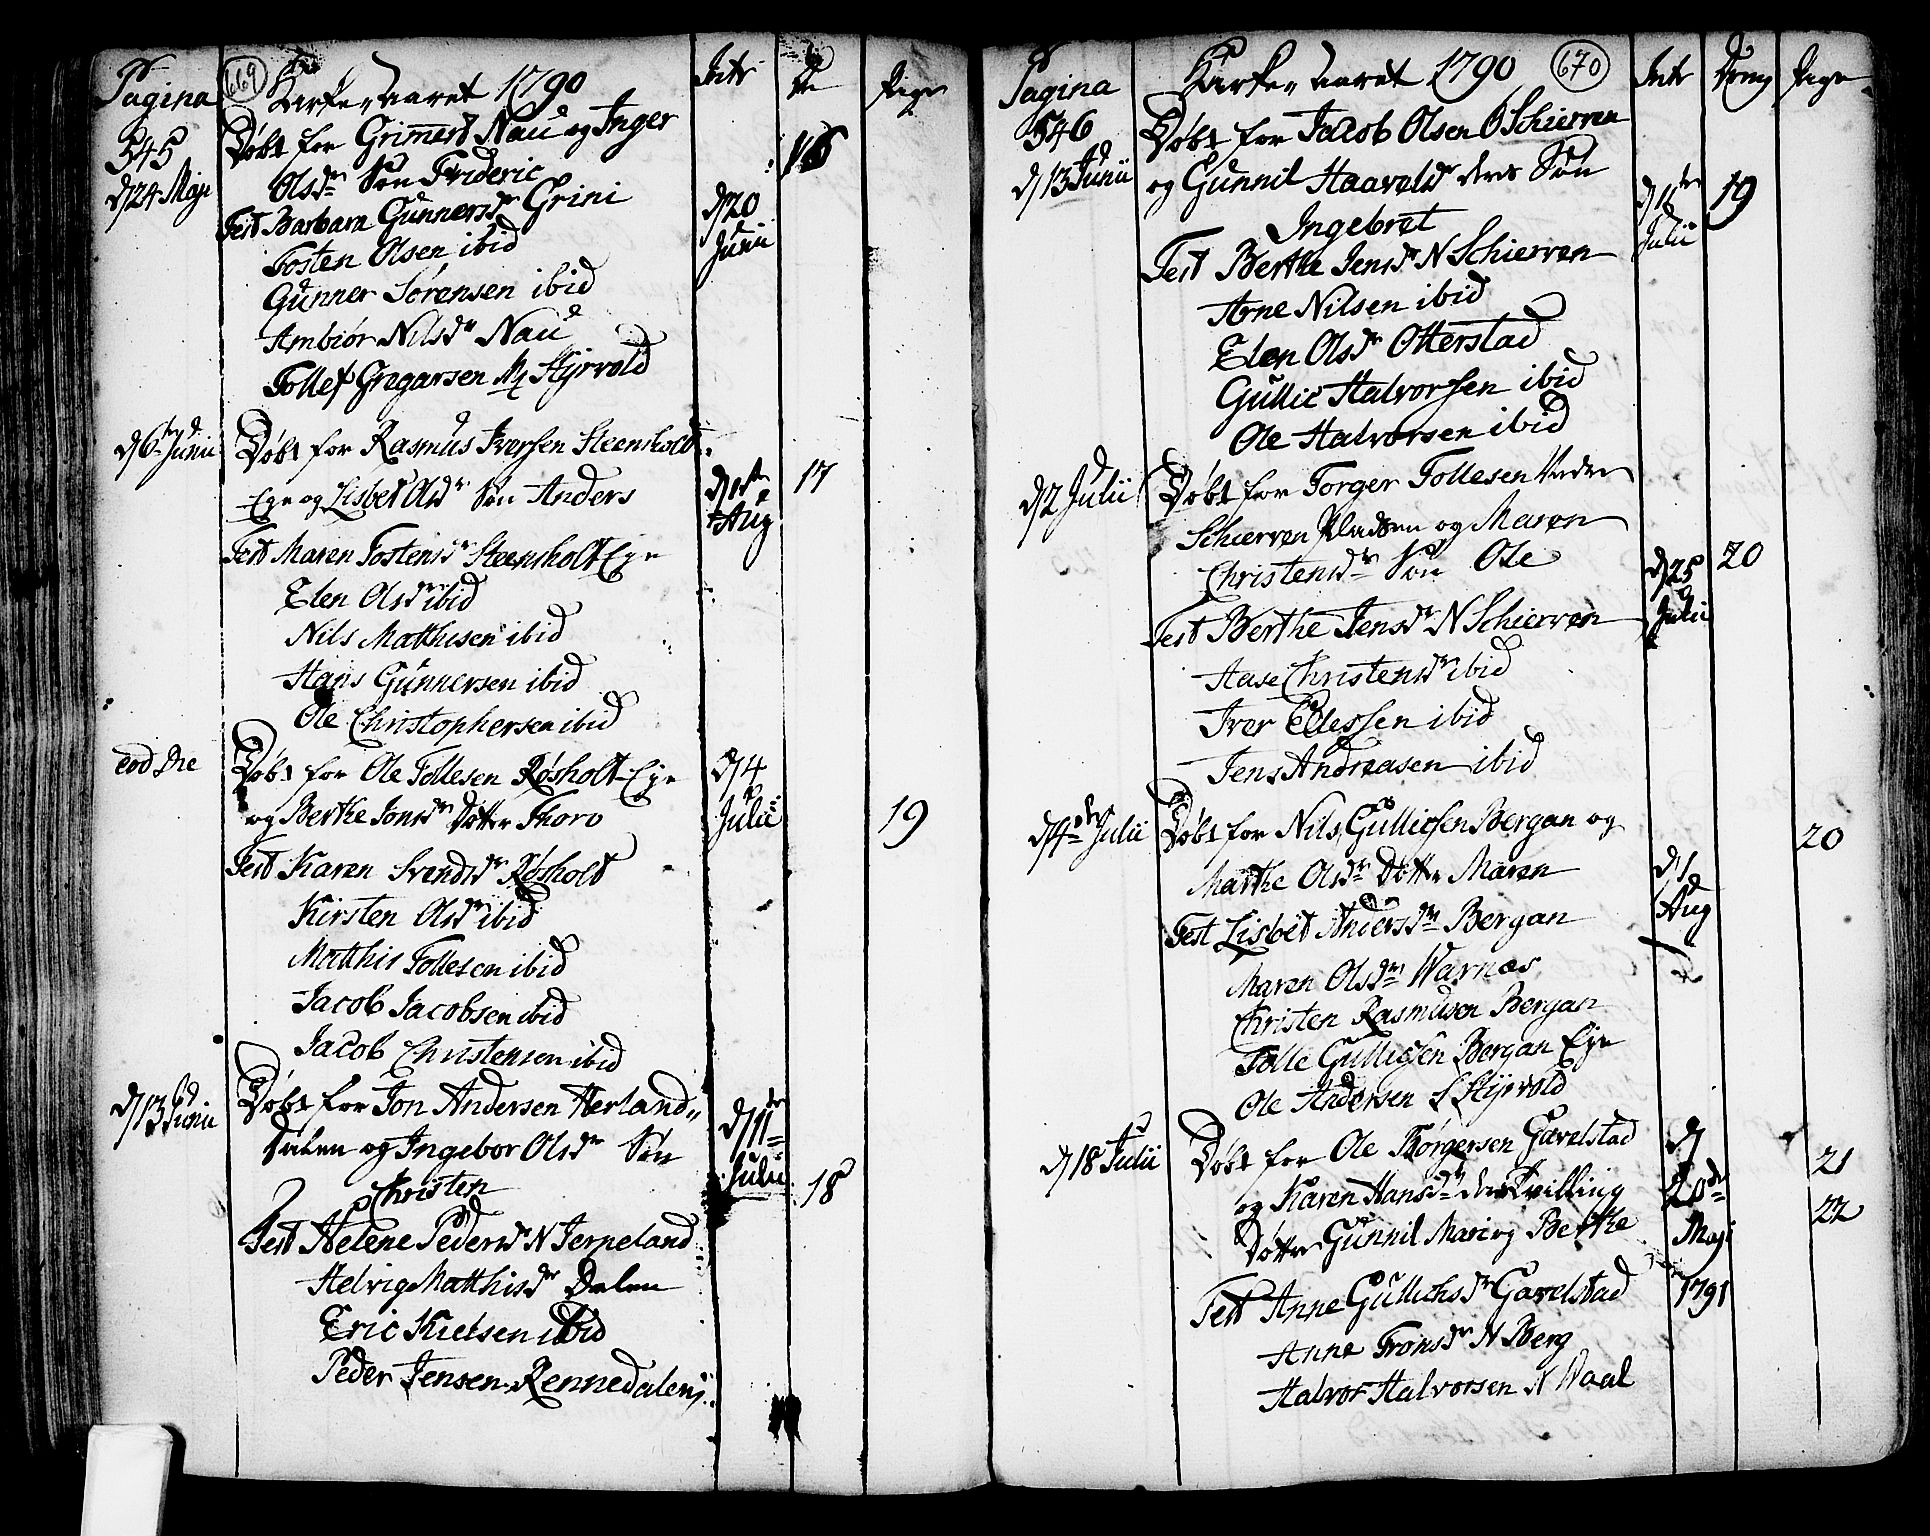 Pagina 669 Kirke-aaret 1790 Intr Pige
545 Døbt for Grimert Nau og Inger
d 24 Maji Olsdr Søn Frideric 16
Test Barbara Gunnersdr Grini d 20 Junii
Tosten Olsen ibid
Gunner Sørensen ibid
Ambiør Nilsdr Nau
Tollef Gregarsen N Styrvold
d 6te Junii Døbt for Rasmus Iversen Steensholt
Eye og Lisbet Olsdr Søn Anders d 1ste Aug 17
Test Maren Tostensdr Steensholt Eye
Elen Olsdr ibid
Nils Matthisen ibid
Hans Gunnersen ibid
Ole Christophersen ibid
eod Die Døbt for Ole Tollesen Røsholt Eye d 4 Julii
og Berthe Jonsdr Dotter Thoro 19
Test Karen Svendsdr Røsholt
Kirsten Olsdr ibid
Matthis Tollesen ibid
Jacob Jacobsen ibid
Jacob Christensen ibid
d 13 Junii Døbt for Jon Andersen Herland-
Dalen og Ingebor Olsdr Søn d 11te Julii
Christen 18
Test Helene Pedersdr N Jerneland
Helvig Matthisdr Dalen
Eric Kielsen ibid
Peder Jensen Rennedalen
Pagina Kirke-aaret 1790 670 Intr Dreng Pige
546 Døbt for Jacob Olsen Ø Schierven
d 13 Junii og Gunnil Haavelsdr deres Søn d 11te Julii 19
Ingebret
Test Berthe Jensdr N Schierven
Arne Nilsen ibid
Elen Olsdr Otterstad
Gullic Halvorsen ibid
Ole Halvorsen ibid
d 2 Julii Døbt for Torger Tollesen Nedre
Schierven Pladsen og Maren
Christensdr Søn Ole d 25 Julii 20
Test Berthe Jensdr N Schierven
Aase Christensdr ibid
Iver Ellessen ibid
Jens Andreasen ibid
d 4de Julii Døbt for Nils Gullicsen Bergan og 20
Marthe Olsdr Dotter Maren d 1 Aug
Test Lisbet Andersdr Bergan
Maren Olsdr Warnæs
Christen Rasmusen Bergan
Tolle Gullicsen Bergan Eye
Ole Andersen S Styrvold
d 18 Julii Døbt for Ole Børgersen Gavelstad d 21
og Karen Hansdr deres Tvilling 20de 22
Dottre Gunnil Mari og Berthe Maji
Test Anne Gullichsdr Gavelstad 1791
Anne Tronsdr N Berg
Halvor Halvorsen N Waal